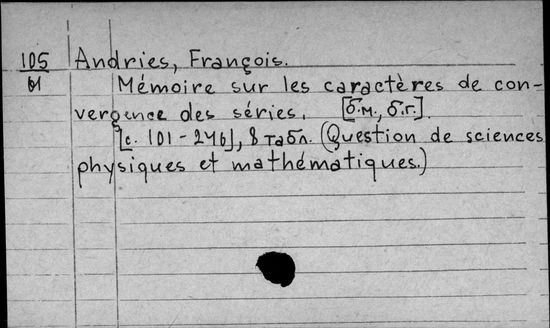 105 Andries, François.
M Mémoire sur les caractères de con-
vergence des séries. [б.м., б.г.].
[с. 101-246], 8 табл. (Question de sciences
physiques et mathématiques.)